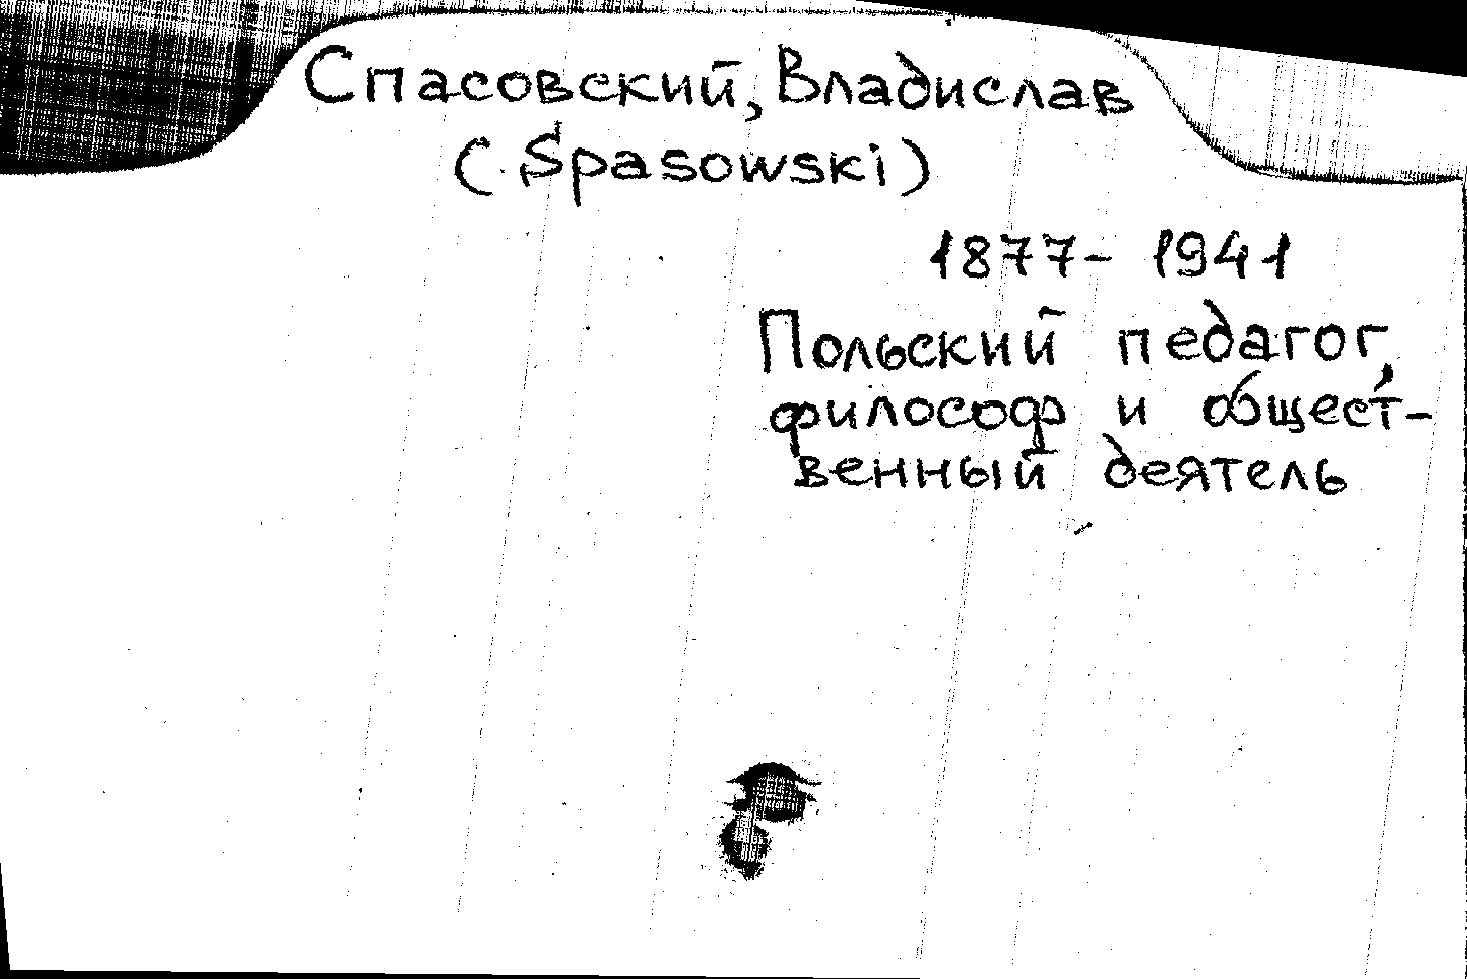 Спасовский, Владислав
(Spasowski)
1877- 1941
Польский педагог,
философ и общест-
венный деятель